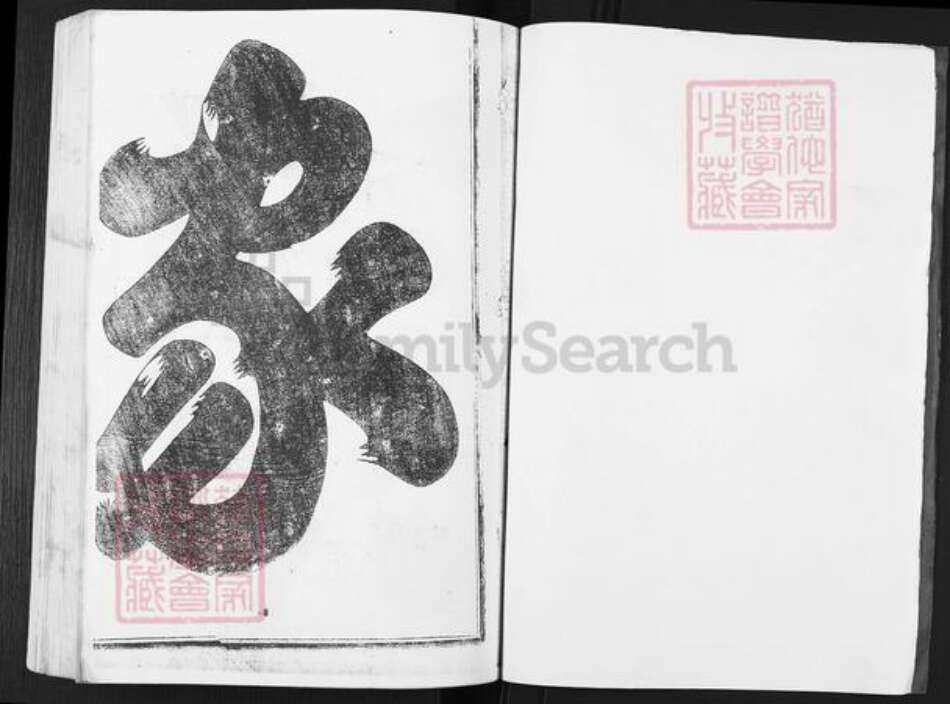 家
猶他家
譜學會
收藏
猶他家
譜學會
收藏
FamilySearch